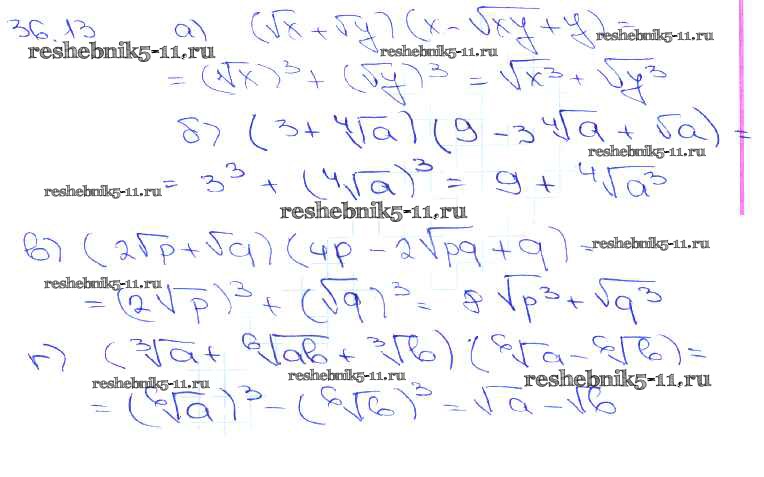 36.13 а) (√x + √y)(x - √xy + y) =
reshebnik5-11.ru reshebnik5-11.ru reshebnik5-11.ru
= (√x)³ + (√y)³ = √x³ + √y³
б) (3 + ⁴√a)(9 - 3⁴√a + √a) =
reshebnik5-11.ru
= 3³ + (⁴√a)³ = 9 + ⁴√a³
reshebnik5-11.ru
reshebnik5-11.ru
в) (2√p + √q)(4p - 2√pq + q) =
reshebnik5-11.ru
reshebnik5-11.ru
= (2√p)³ + (√q)³ = 8√p³ + √q³
г) (³√a + ⁶√ab + ³√b)·(⁶√a - ⁶√b) =
reshebnik5-11.ru reshebnik5-11.ru reshebnik5-11.ru
= (⁶√a)³ - (⁶√b)³ = √a - √b